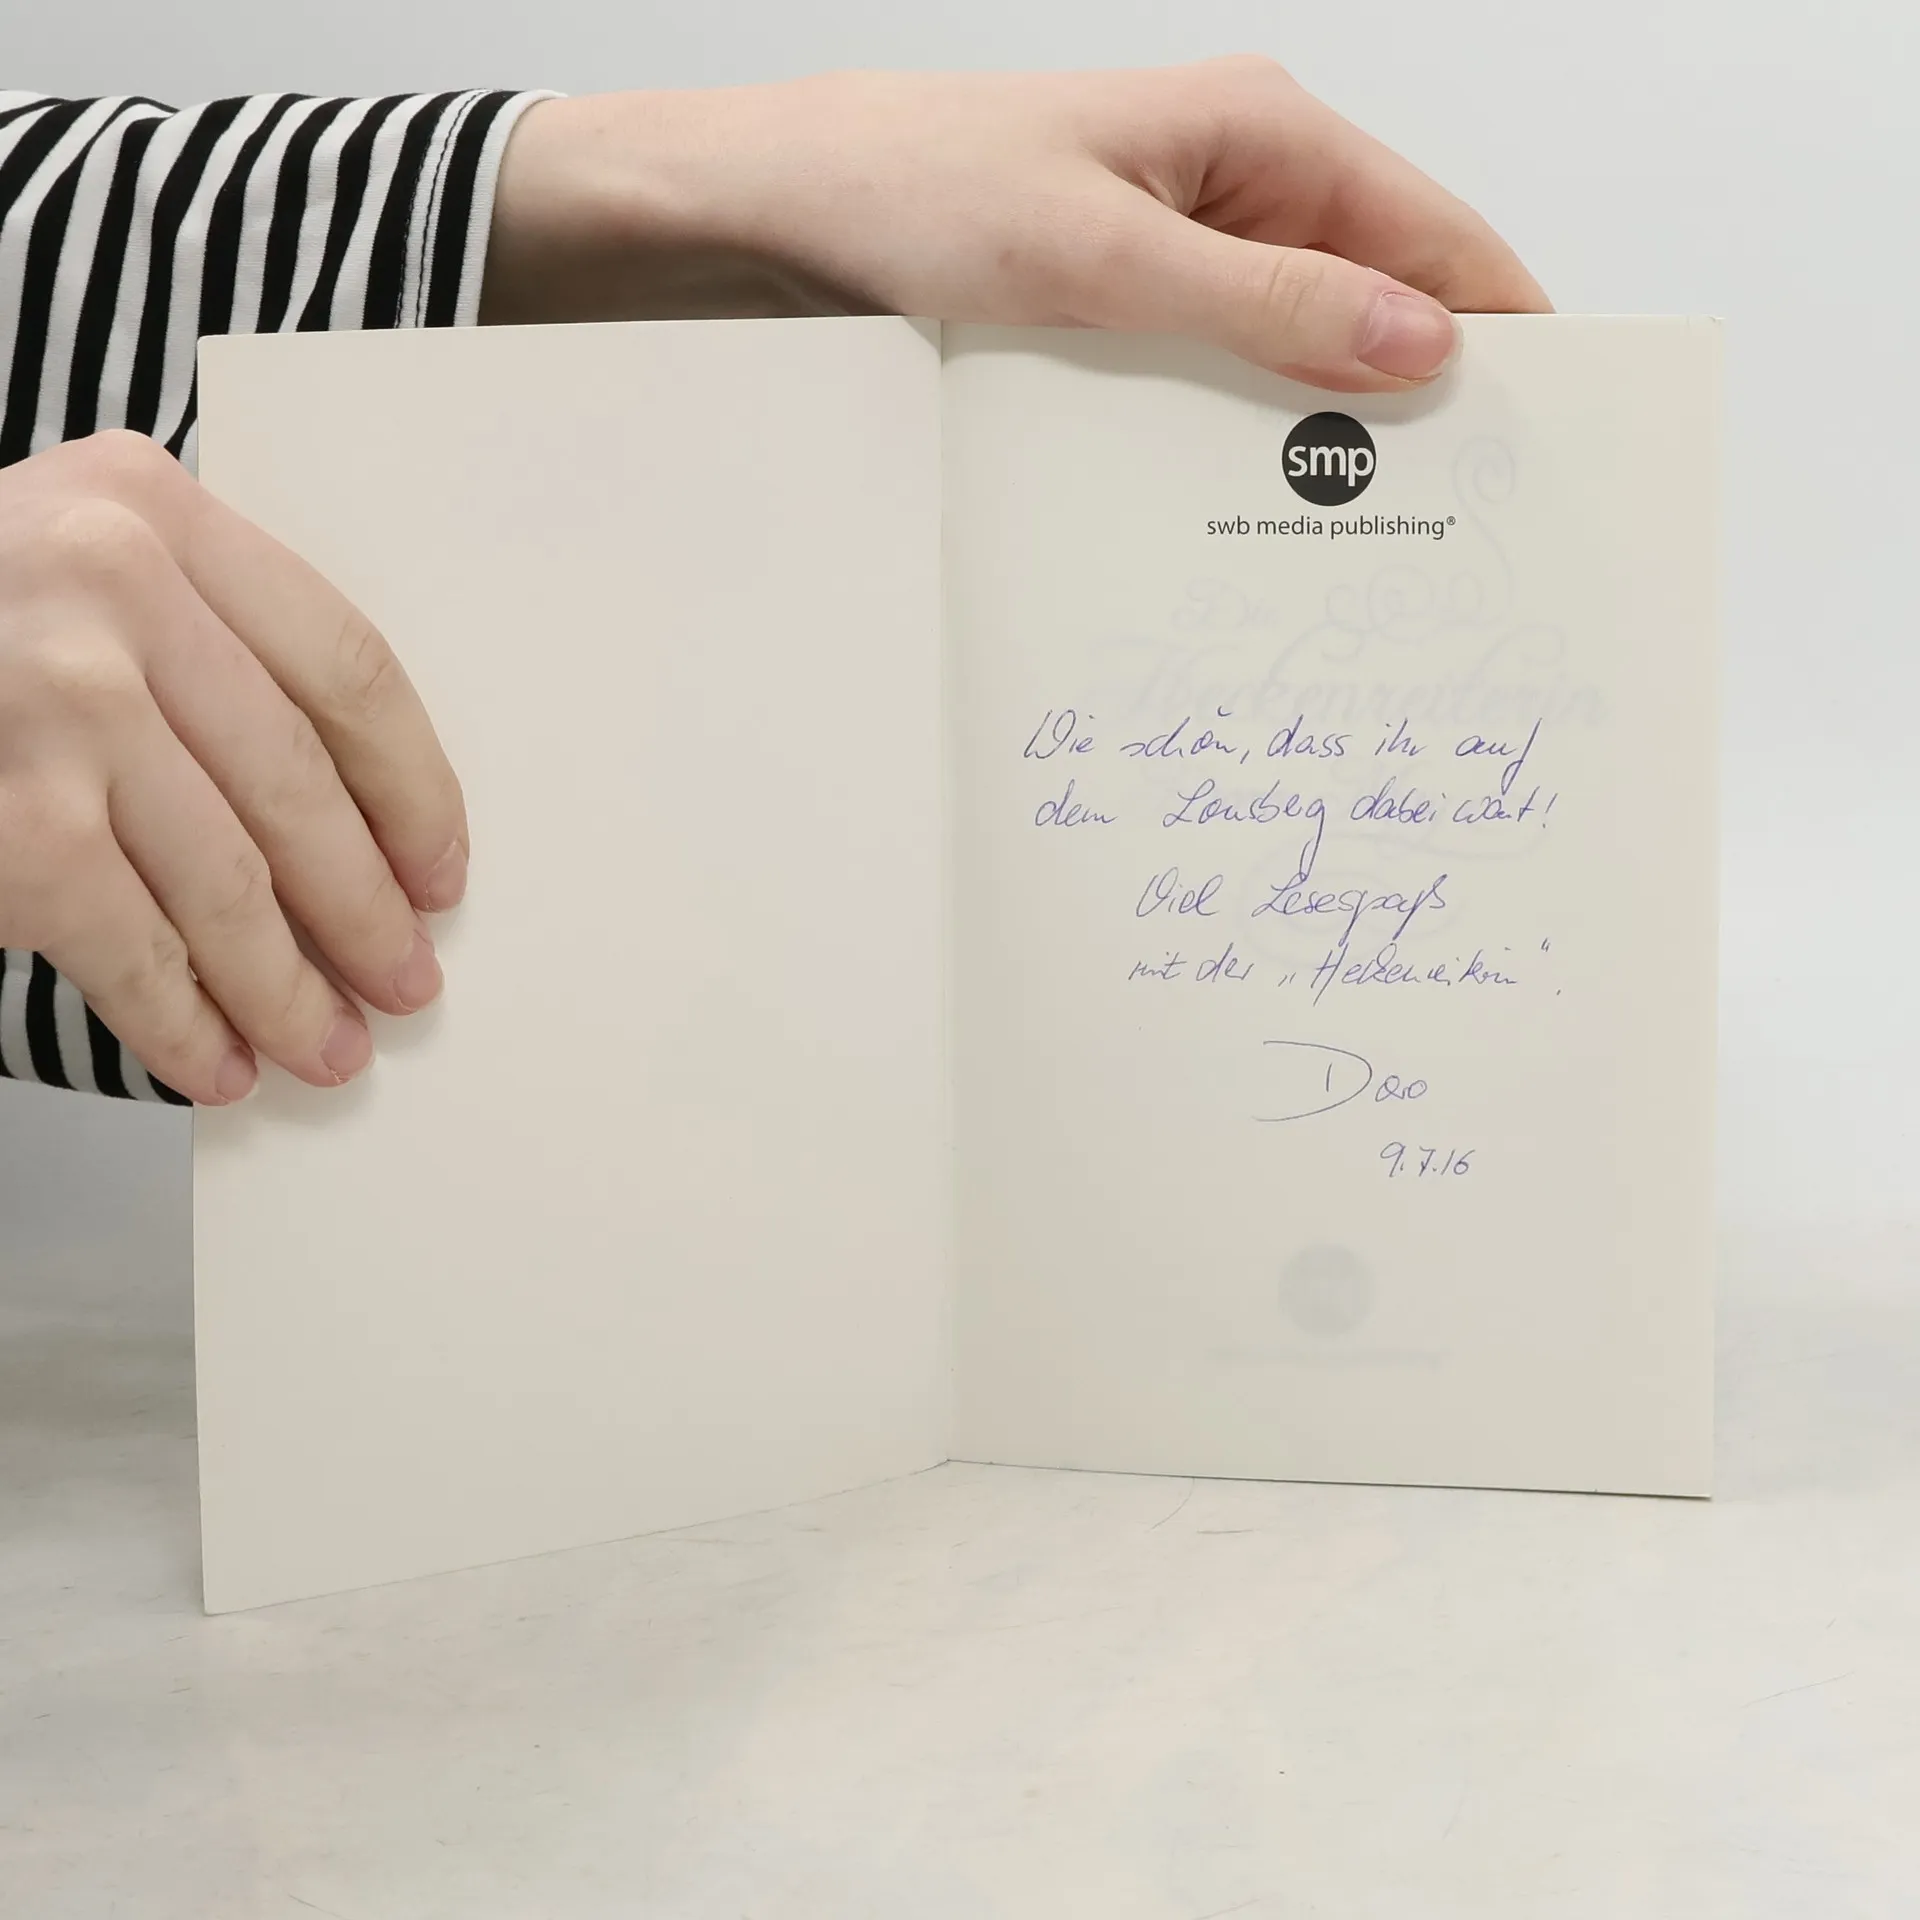 smp
swb media publishing®
Die
Heckenreiterin
Wie schön, dass ihr auf
dem Lousberg dabei wart!
Viel Lesespaß
mit der „Heckenreiterin".
Doro
9.7.16